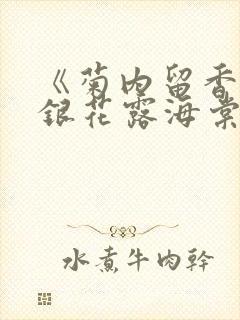 《菊内留香
銀花露海棠
水煮牛肉幹